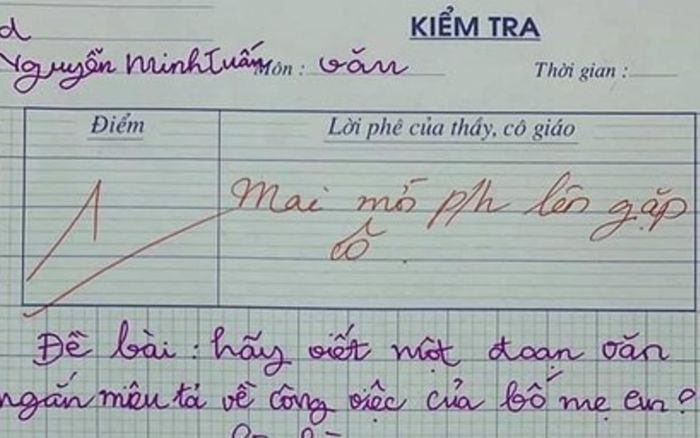 KIỂM TRA
Nguyễn Minh Tuấn Môn : văn Thời gian :
Điểm Lời phê của thầy, cô giáo
1 Mai mời p/h lên gặp
cô
Đề bài : hãy viết một đoạn văn
ngắn miêu tả về công việc của bố mẹ em?